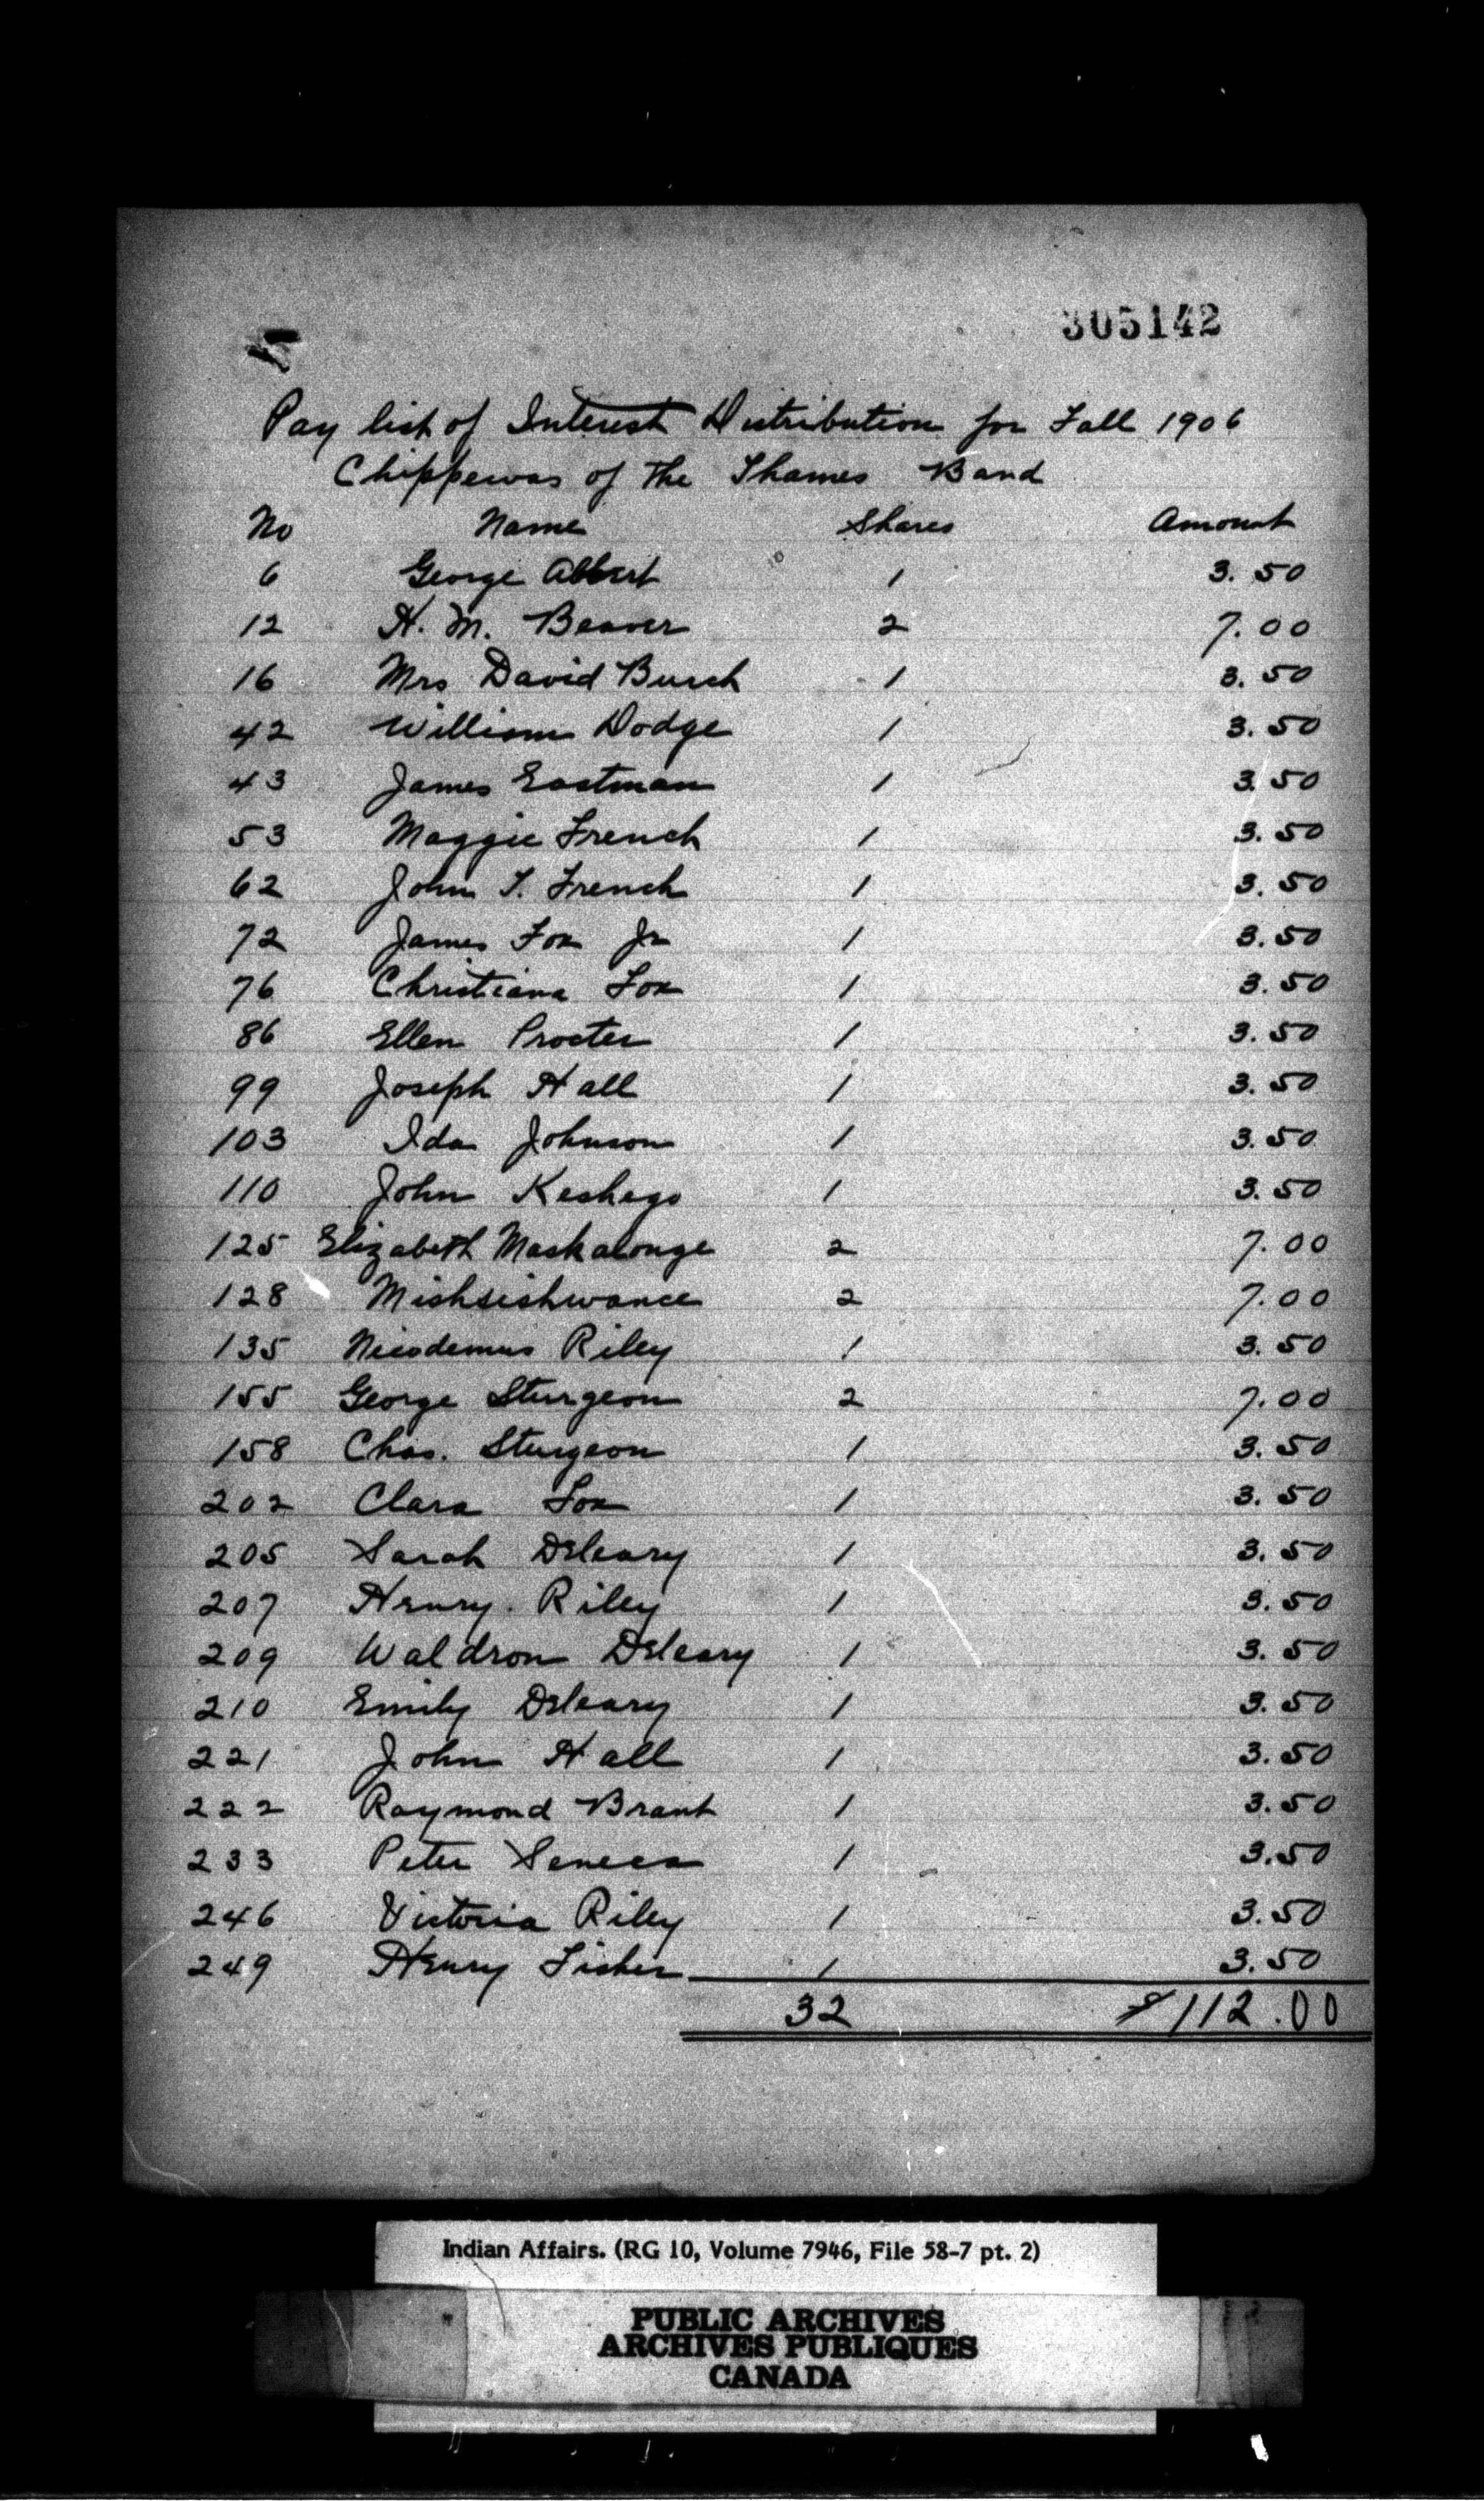 305142
Pay list of Interest Distribution for Fall 1906
Chippewas of The Thames Band
No Name Shares Amount
6 George Albert 1 3.50
12 H. M. Beaver 2 7.00
16 Mrs David Burch 1 3.50
42 William Dodge 1 3.50
43 James Eastman 1 3.50
53 Maggie French 1 3.50
62 John T. French 1 3.50
72 James Fox Jr 1 3.50
76 Christiana Fox 1 3.50
86 Ellen Procter 1 3.50
99 Joseph Hall 1 3.50
103 Ida Johnson 1 3.50
110 John Keshego 1 3.50
125 Elizabeth Maskalonge 2 7.00
128 Mishseishwance 2 7.00
135 Nicodemus Riley 1 3.50
155 George Sturgeon 2 7.00
158 Chas. Sturgeon 1 3.50
202 Clara Fox 1 3.50
205 Sarah Deleary 1 3.50
207 Henry Riley 1 3.50
209 Waldron Deleary 1 3.50
210 Emily Deleary 1 3.50
221 John Hall 1 3.50
222 Raymond Brant 1 3.50
233 Peter Seneca 1 3.50
246 Victoria Riley 1 3.50
249 Henry Fisher 1 3.50
32 $112.00
Indian Affairs. (RG 10, Volume 7946, File 58-7 pt. 2)
PUBLIC ARCHIVES
ARCHIVES PUBLIQUES
CANADA